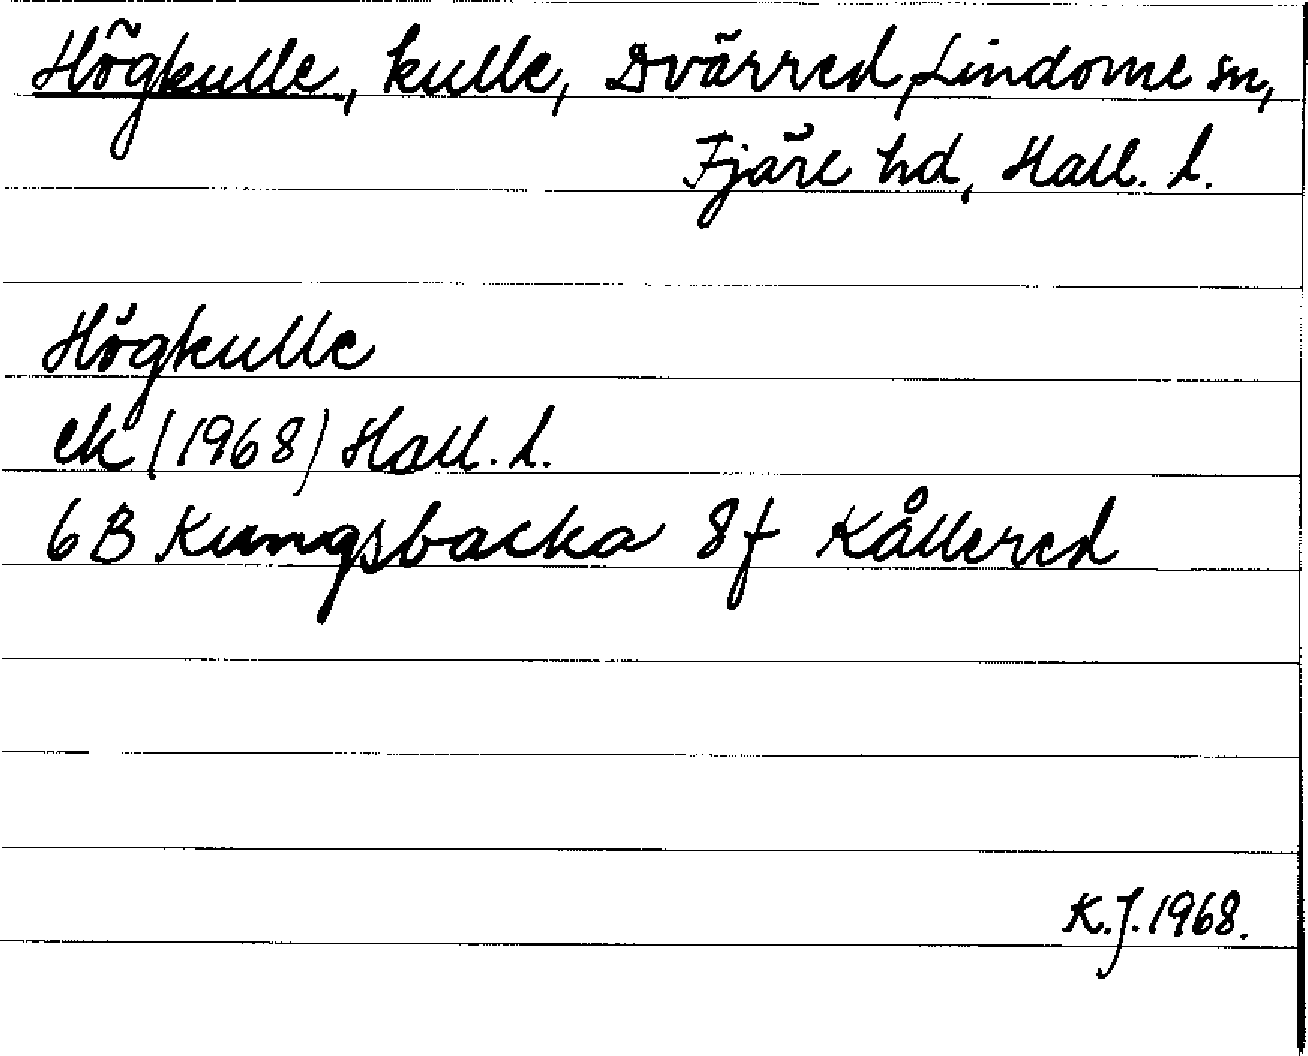 Högkulle, kulle, Dvärred, Lindome sn,
Fjäre hd, Hall. l.
Högkulle
ek (1968) Hall. l.
6B Kungsbacka 8f Kållered
K.J. 1968.